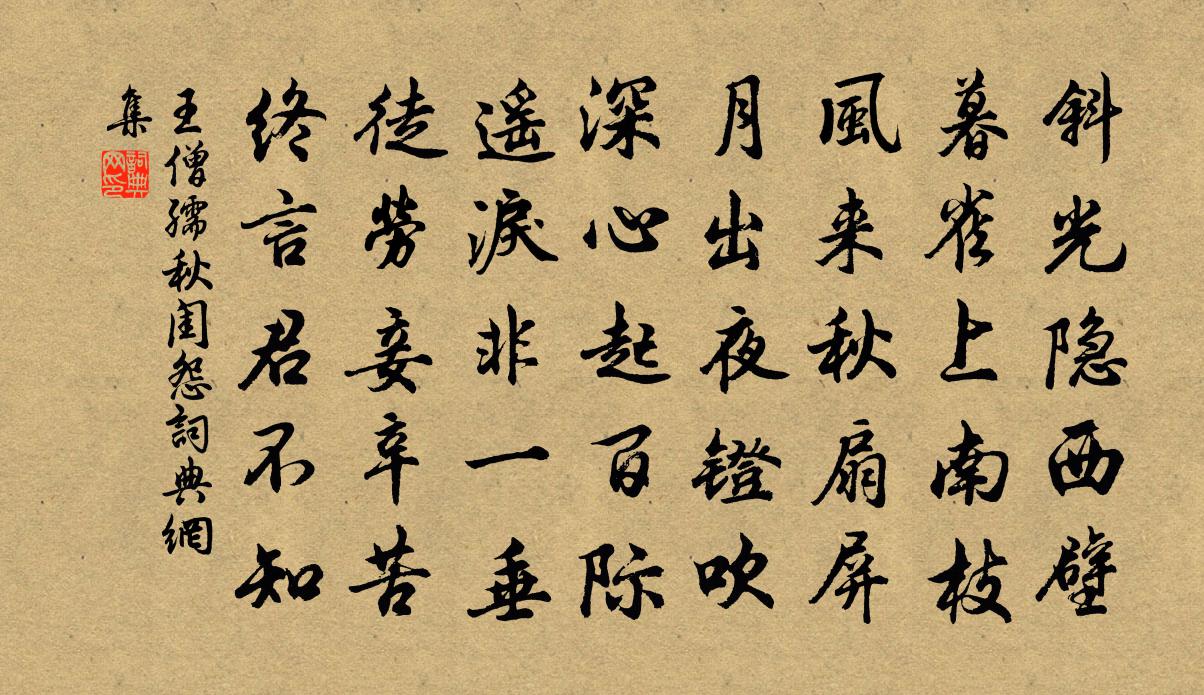 斜光隐西壁
暮雀上南枝
風来秋扇屏
月出夜鐙吹
深心起百际
遥淚非一垂
徒勞妾辛苦
终言君不知
王僧孺秋闺怨詞典網
集
詞典网印